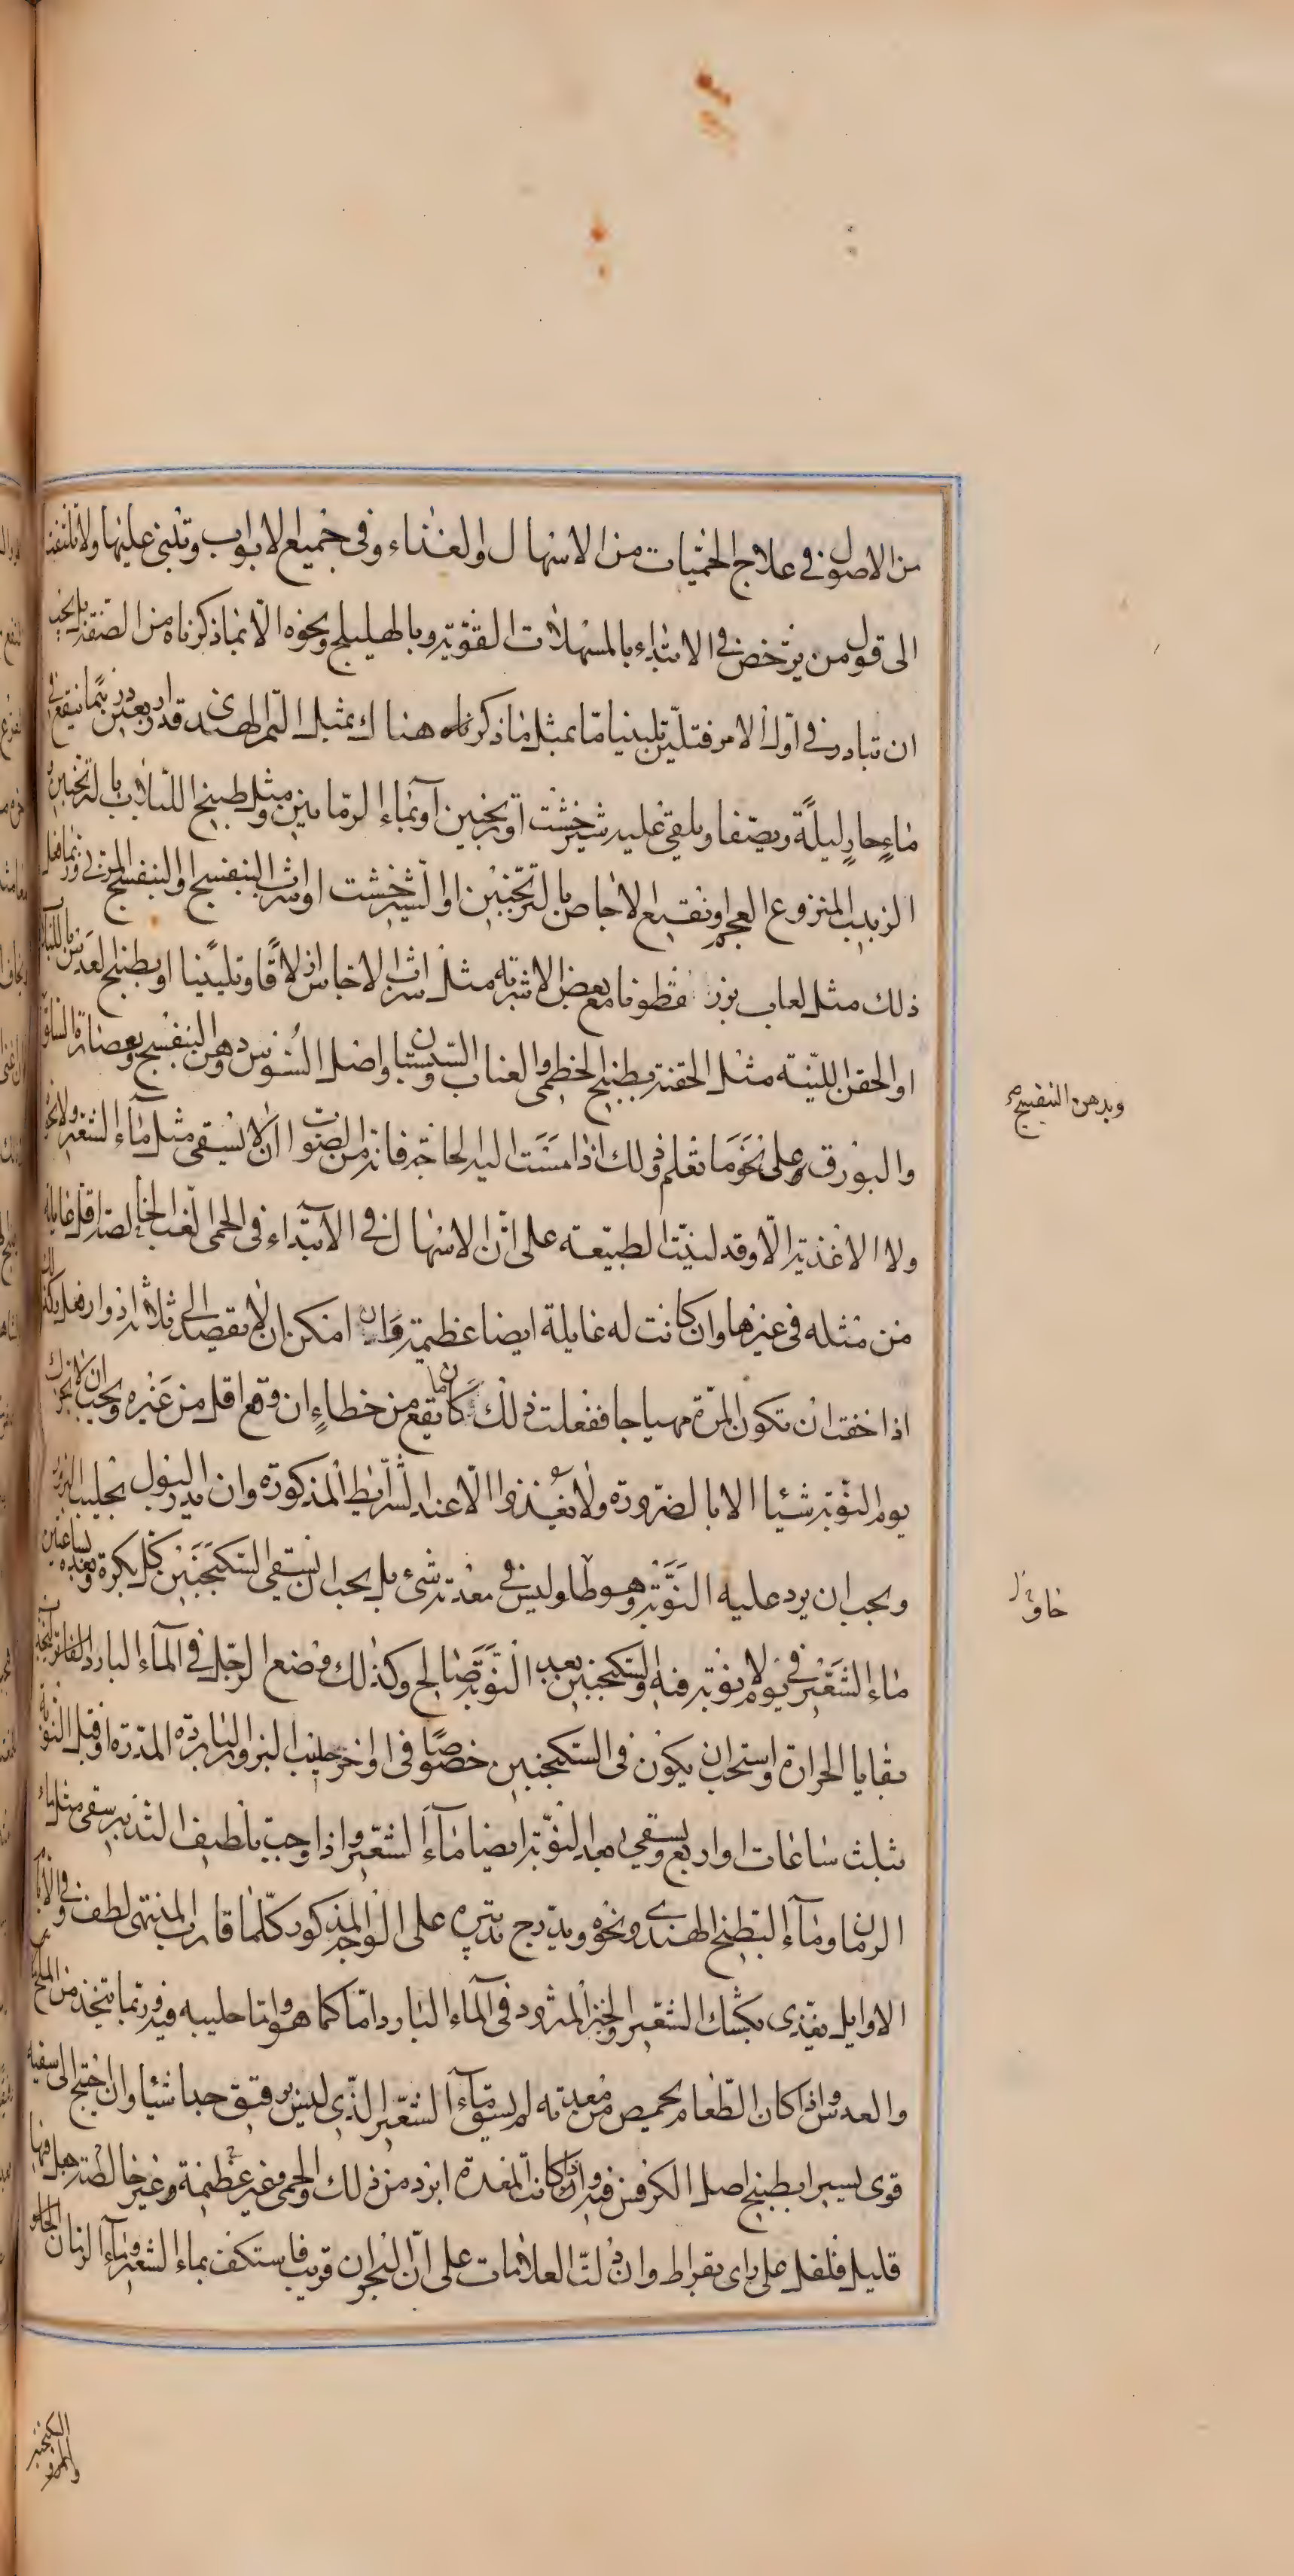 من الاصول في علاج الحميات من الاسهال والغذاء وفي جميع الابواب وتبنى عليها ولا تلتفت
الى قول من يرخص في الابتداء بالمسهلات القوية وبالهليلج ونحوه الا بما ذكرناه من الصفة بل يجب
ان تبادر في اول الامر فتلين تليينا ما بمثل ما ذكرناه هناك بمثل التمر الهندى قدر اربعين درهما ينقع في
ماء حار ليلة ويصفا ويلقى عليه شيرخشت او ترنجبين او بماء الرمانين ومثل طبيخ اللبلاب بالترنجبين و
الزبيب المنزوع العجم ونقيع الاجاص بالترنجبين او الشيرخشت او شراب البنفسج او البنفسج المربى وربما فعل
ذلك مثل لعاب بزر قطونا مع بعض الاشربة مثل شراب الاجاص ازلاقا وتليينا او بطبيخ العدس باللبلاب
او الحقن اللينة مثل الحقنة بطبيخ الخطمى والعناب والسپستان واصل السوس ودهن البنفسج وعصارة السلق
والبورق وعلى نحو ما تعلم وذلك اذا مست اليه الحاجة فانه من الصواب ان لا يسقى مثل ماء الشعير ولا نحوه
ولا الاغذية الا وقد لينت الطبيعة على ان الاسهال في الابتداء في الحمى الغب الخالصة اقل غايلة
من مثله في غيرها وان كانت له غايلة ايضا عظيمة وان امكن ان لا يقصد الى ثلاثة ادوار فعل ذلك
اذا خفت ان تكون المرة مهياجا ففعلت ذلك كان ما يقع من خطاء ان وقع اقل من غيره ويجب ان لا يحرك
يوم النوبة شيئا الا بالضرورة ولا يغذوا الا عند الشرايط المذكورة وان يدر البول بحليب البزور
ويجب ان يرد عليه النوبة وهو طاو ليس في معدته شئ بل يجب ان يسقى السكنجبين كل بكرة وبعده بساعتين
ماء الشعير في يوم لا نوبة فيه والسكنجبين بعد النوبة صالح وكذلك وضع الرجل في الماء البارد الفاتر ليجذب
بقايا الحرارة واستحب ان يكون في السكنجبين خصوصا في اواخره حليب البزور الباردة المدرة او قبل النوبة
بثلث ساعات او اربع ويسقى بعد النوبة ايضا ماء الشعير واذا وجب تلطيف التدبير سقى مثل ماء
الرمان وماء البطيخ الهندى ونحوه ويدرج تدبيره على الوجه المذكور كلما قارب المنتهى لطف وفي
الاوايل يغذى بكشك الشعير والخبز المثرود في الماء البارد اما كما هو واما حليبه فيه وربما يتخذ من الملح
والعدس واذا كان الطعام يحمض من معدته لم يسق ماء الشعير الذى ليس برقيق جدا شيئا وان احتيج الى سقيه
قوى يسيرا بطبيخ اصل الكرفس فيه وان كانت المعدة ابرد من ذلك والحمى غير عظيمة وغير خالصة جعل فيها
قليل فلفل على راى بقراط وان دلت العلامات على ان البحران قريب فاستكف بماء الشعير وماء الرمان الحلو
وبدهن البنفسج صح
خاو
السكنجبين